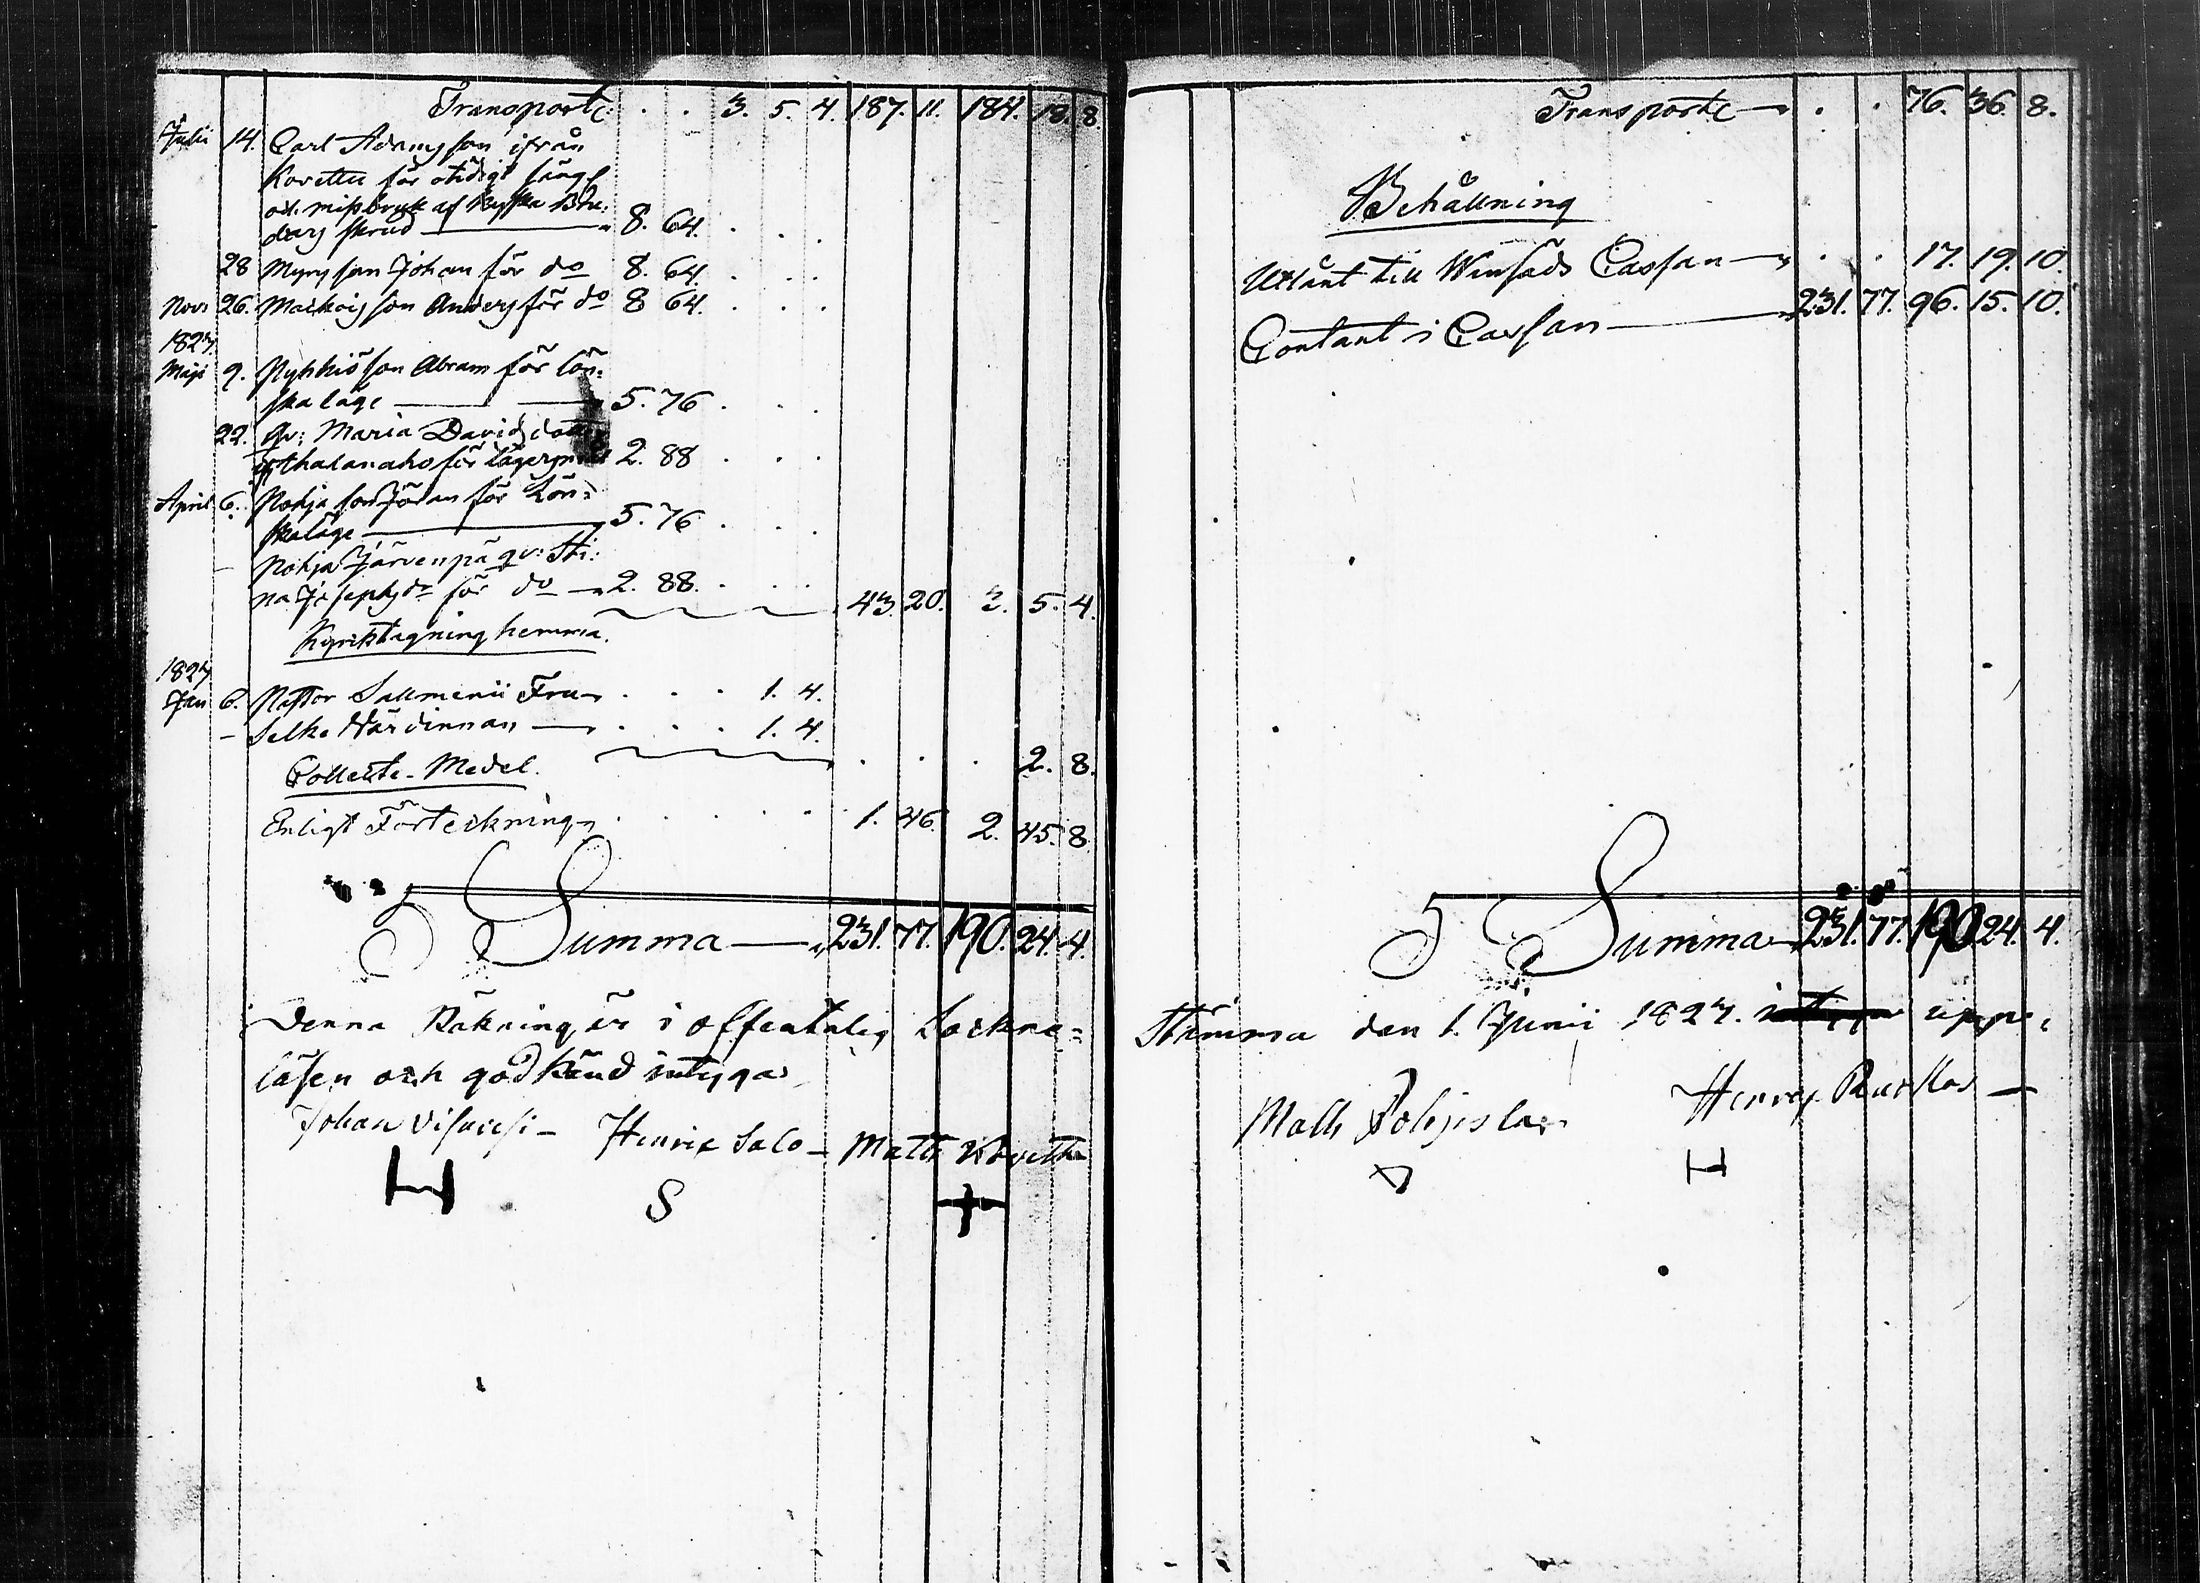 Transporte . . 3. 5. 4. 187. 11. 184. 18. 8.
Julii 14. Carl Adamsson ifrån
Koivettu för otidigt säng-
och missbruk af Ryska Bru-
dars skrud 8. 64. . . .
28 Myrysson Johan för do 8. 64. . . .
Nov. 26. Matkoisson Anders för do 8 64. . . .
1827.
Maji 9. Nykkiösson Abram för lön-
ska läge 5. 76 . . .
22. qv: Maria Davidsdotter
för lägersmål 2. 88 . . .
April 6. Pohja son Johan för Lön-
skaläge 5. 76 . . .
– Pohja Järvenpä qv: Sti-
na Josephsdr för do 2. 88. . . . 43. 20. 3. 5. 4.
Kyrktagning hemma.
1827
Jan 6. Pastor Salmenii Fru . . . 1. 4.
– Selke Värdinnan . . . 1. 4.
. . . 2. 8.
Collecte-Medel.
Enligt Förteckning . . . . . 1. 46. 2. 45. 8.
Summa 231. 77. 190. 24. 4.
Denna Räkning är i offentelig Sockne-
läsen och godkänd intygar
Johan Visuri – Henric Salo – Matts Koivettu
H S +
Transporte . . 76. 36. 8.
Behållning
Utlånt till Winfads Cassan . . 17. 19. 10.
Contant i Cassan 231. 77. 96. 15. 10.
Summa 231. 77. 190. 24. 4.
Stämma den 1. Junii 1827. upp-
Matts Pohjola Henric